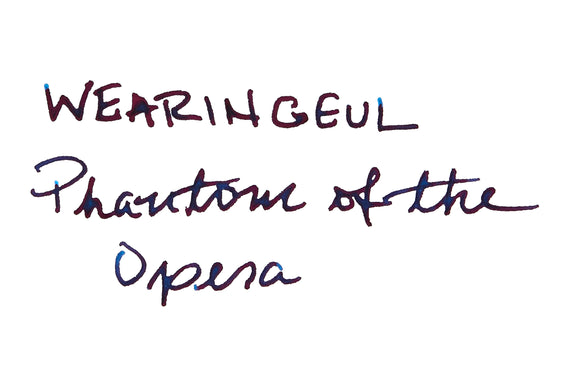 WEARINGEUL
Phantom of the
Opera